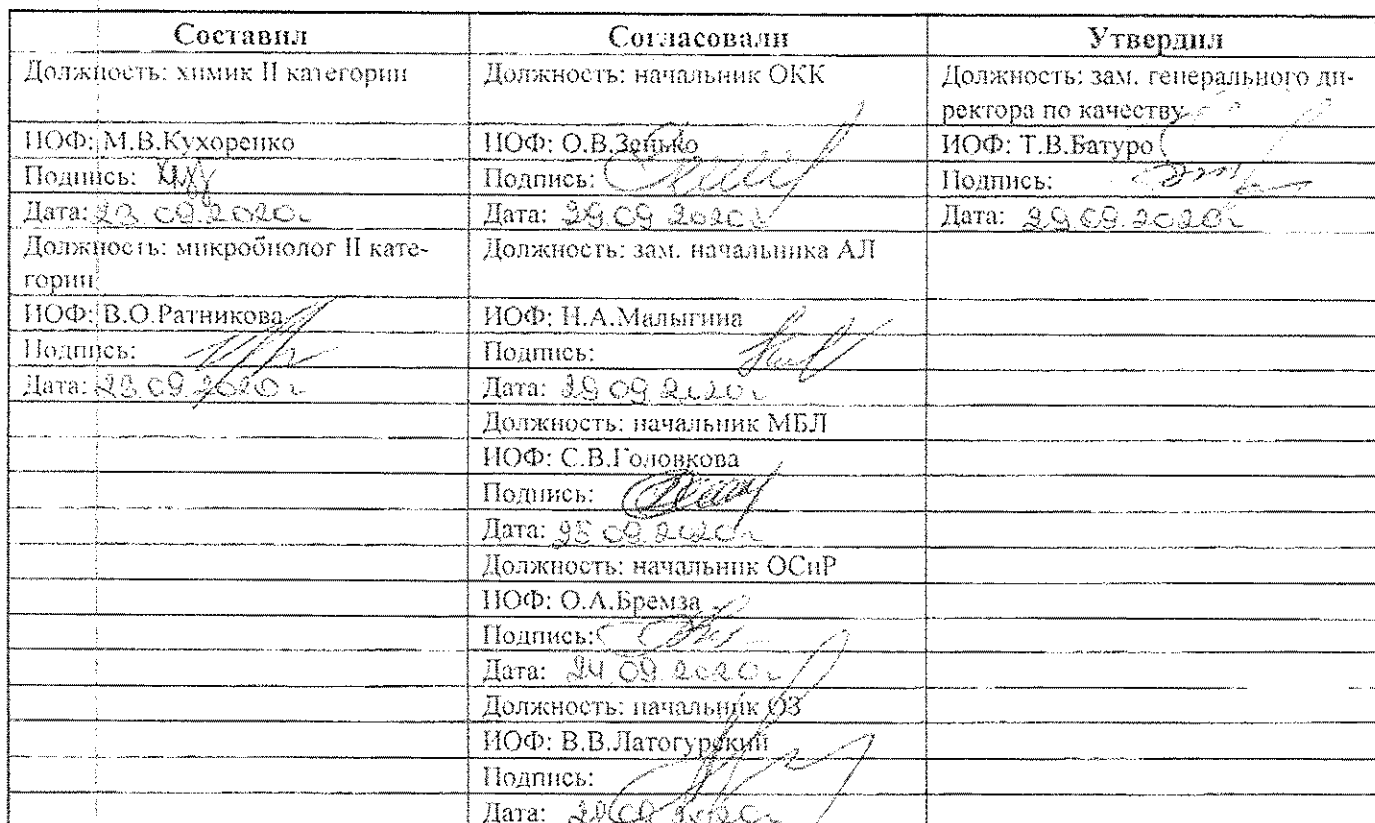 Составил Согласовали Утвердил
Должность: химик II категории Должность: начальник ОКК Должность: зам. генерального ди-
ректора по качеству
ИОФ: М.В.Кухоренко ИОФ: О.В.Зенько ИОФ: Т.В.Батуро
Подпись: Подпись: Подпись:
Дата: 23.09.2020г Дата: 29.09.2020г Дата: 29.09.2020г
Должность: микробиолог II кате- Должность: зам. начальника АЛ
гории
ИОФ: В.О.Ратникова ИОФ: Н.А.Малыгина
Подпись: Подпись:
Дата: 23.09.2020г Дата: 09.2020г
Должность: начальник МБЛ
ИОФ: С.В.Головкова
Подпись:
Дата: 25.09.2020г
Должность: начальник ОСиР
ИОФ: О.А.Бремза
Подпись:
Дата: 24.09.2020г
Должность: начальник ОЗ
ИОФ: В.В.Латогурский
Подпись:
Дата: